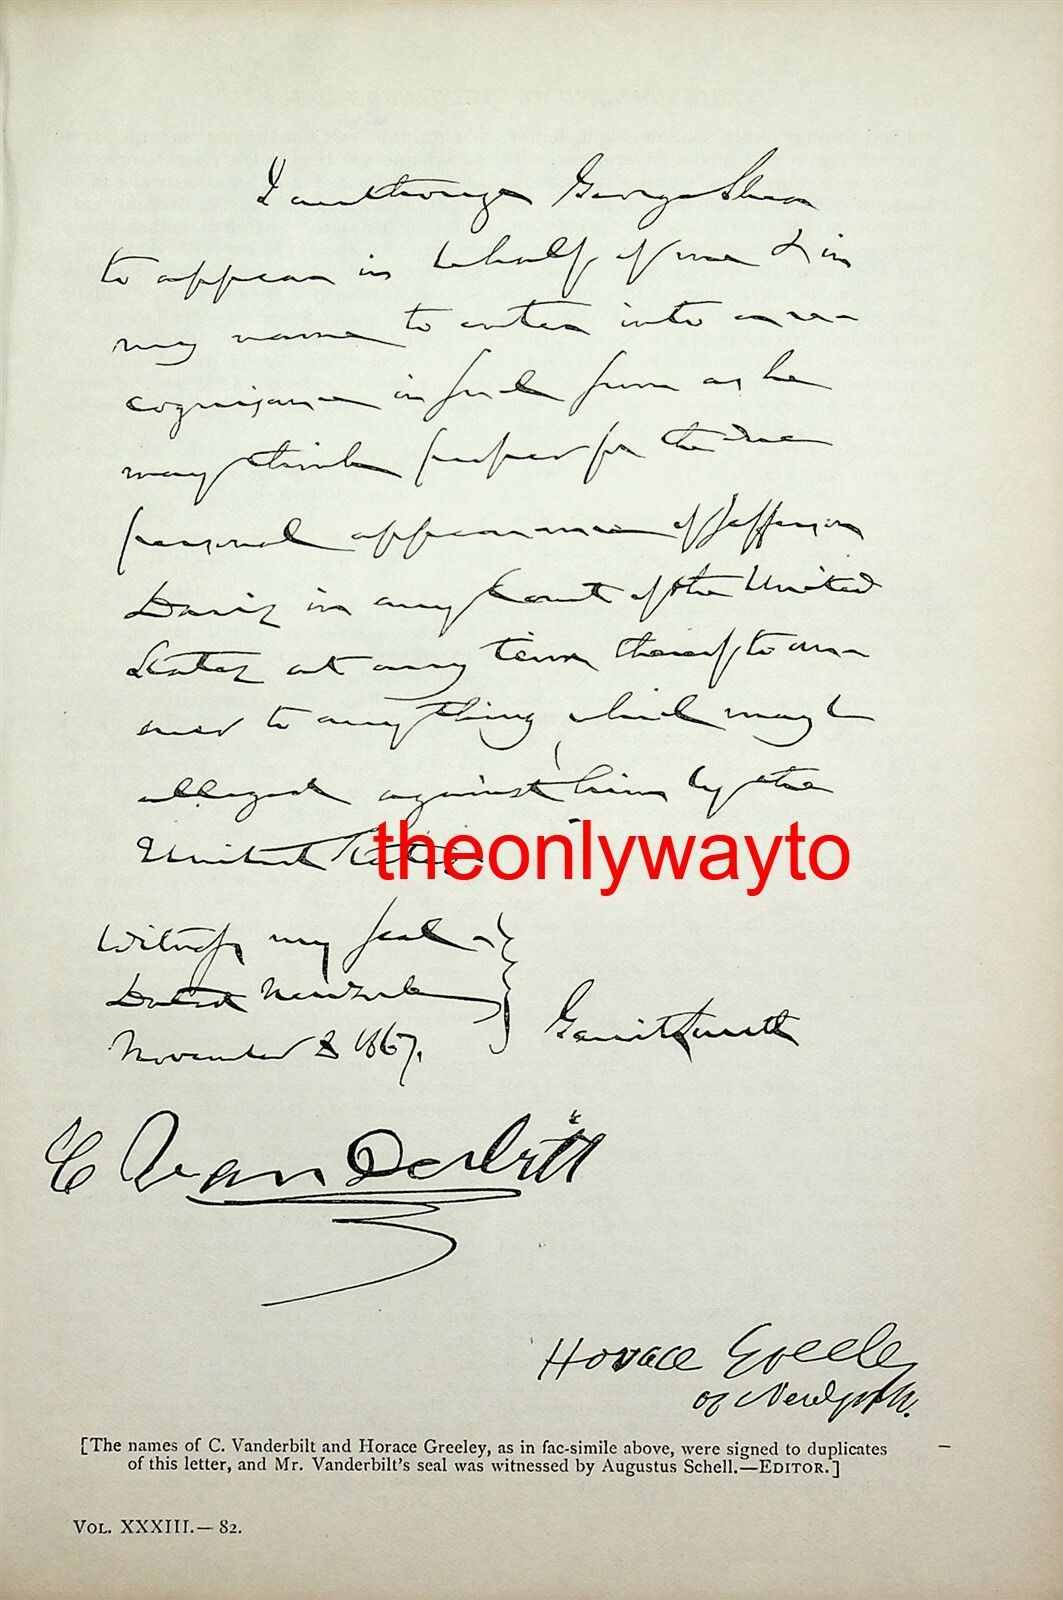 I authorize George Shea
to appear in behalf of me & in
my name to enter into a re-
cognizance in such form as he
may think proper for the due
personal appearance of Jefferson
Davis in any Court of the United
States at any term thereof to an-
swer to anything which may be
alleged against him by the
United States
theonlywayto
Witness my seal
Dated New York
November 8 1867.
Gerrit Smith
C Van Derbilt
Horace Greeley
of New York.
[The names of C. Vanderbilt and Horace Greeley, as in fac-simile above, were signed to duplicates
of this letter, and Mr. Vanderbilt's seal was witnessed by Augustus Schell.—EDITOR.]
VOL. XXXIII.—82.